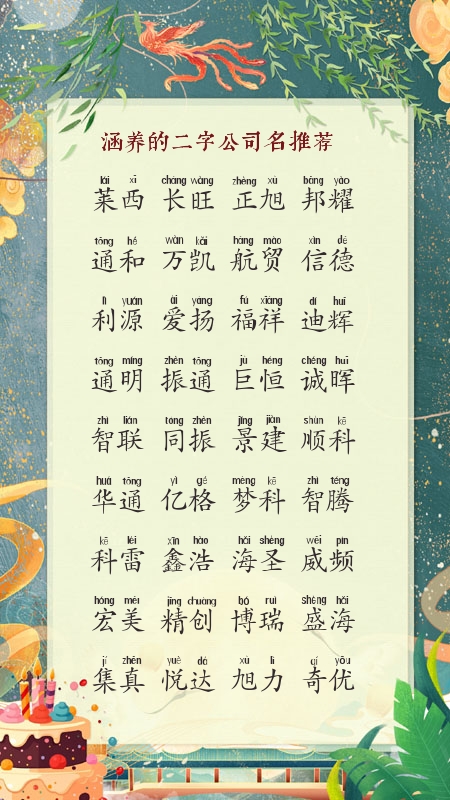 涵养的二字公司名推荐
lái xī cháng wàng zhèng xù bāng yào
莱西 长旺 正旭 邦耀
tōng hé wàn kǎi háng mào xìn dé
通和 万凯 航贸 信德
lì yuán ài yáng fú xiáng dí huī
利源 爱扬 福祥 迪辉
tōng míng zhèn tōng jù héng chéng huī
通明 振通 巨恒 诚晖
zhì lián tóng zhèn jǐng jiàn shùn kē
智联 同振 景建 顺科
huá tōng yì gé mèng kē zhì téng
华通 亿格 梦科 智腾
kē léi xīn hào hǎi shèng wēi pín
科雷 鑫浩 海圣 威频
hóng měi jīng chuàng bó ruì shèng hǎi
宏美 精创 博瑞 盛海
jí zhēn yuè dá xù lì qí yōu
集真 悦达 旭力 奇优